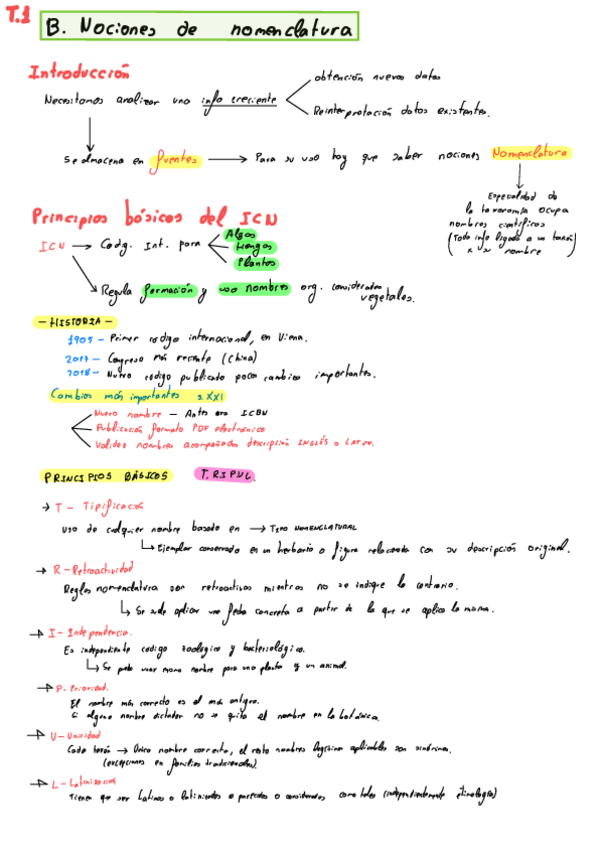 T.1
B. Nociones de nomenclatura
Introducción
Necesitamos analizar una info creciente
obtención nuevos datos
Reinterpretación datos existentes.
Se almacena en fuentes → Para su uso hay que saber nociones Nomenclatura
Especialidad de
la taxonomía ocupa
nombres científicos
(Toda info ligada a un taxón
x su nombre)
Principios básicos del ICN
ICN → Codg. Int. para
Algas
Hongos
Plantas
Regula formación y uso nombres org. considerados
vegetales.
- HISTORIA -
1905 - Primer codigo internacional, en Viena.
2017 - Congreso más reciente (China)
2018 - Nuevo codigo publicado pocos cambios importantes.
Cambios más importantes s.XXI
Nuevo nombre - Antes era ICBN
Publicación formato PDF electrónico
Validez nombres acompañados descripción INGLÉS o LATÍN.
PRINCIPIOS BÁSICOS T.RIPUL.
→ T - Tipificación
Uso de cualquier nombre basado en → TIPO NOMENCLATURAL
Ejemplar conservado en un herbario o figura relacionada con su descripción original.
→ R - Retroactividad
Reglas nomenclatura son retroactivas mientras no se indique lo contrario.
Se suele aplicar una fecha concreta a partir de la que se aplica la misma.
→ I - Independencia.
Es independiente codigo zoológico y bacteriológico.
Se puede usar mismo nombre para una planta y un animal.
→ P - Prioridad.
El nombre más correcto es el más antiguo.
Si alguno nombre dictador no se quita el nombre en la botánica.
→ U - Unicidad
Cada taxón → Único nombre correcto, el resto nombres aplicables son sinónimos.
(excepciones en familias tradicionales).
→ L - Latinización
Tienen que ser Latinos o latinizados o parecidos o considerados como tales (independientemente etimología)